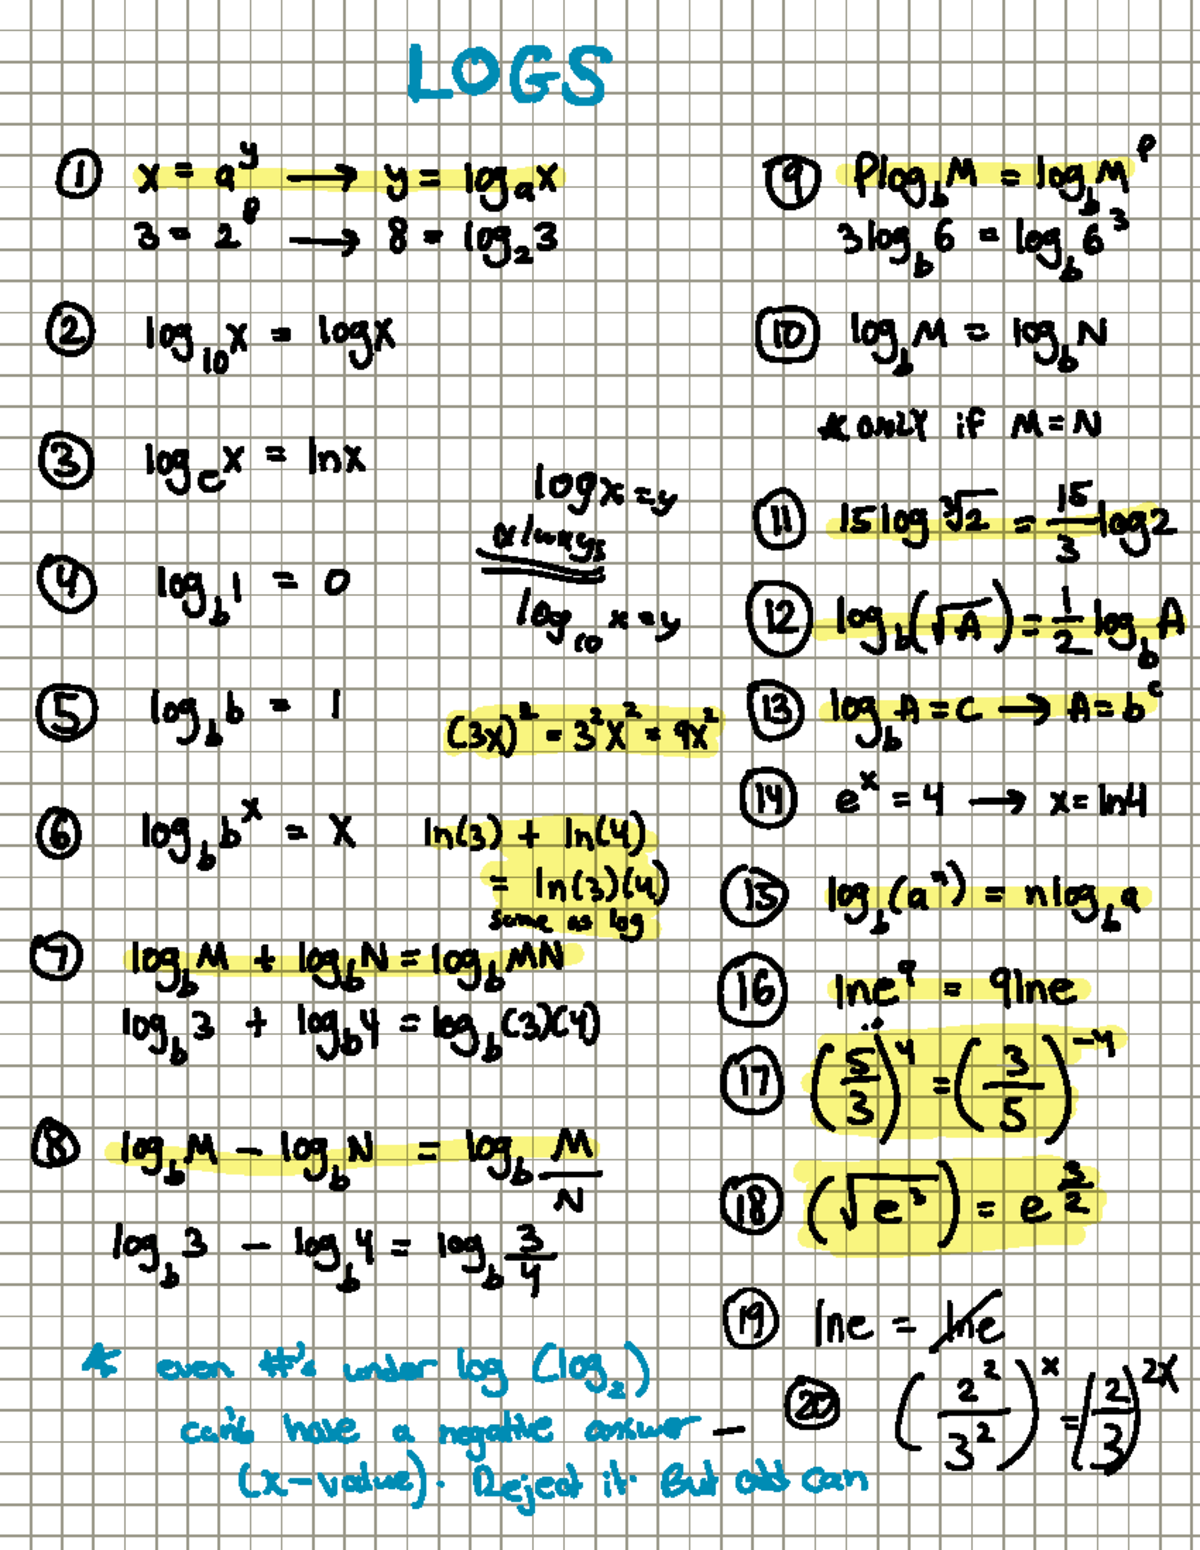 LOGS
① x = a^y → y = log_a x
3 = 2^8 → 8 = log_2 3
② log_10 x = log x
③ log_e x = ln x
log x = y
always
log_10 x = y
④ log_b 1 = 0
⑤ log_b b = 1
(3x)^2 = 3^2 x^2 = 9x^2
⑥ log_b b^x = x
ln(3) + ln(4)
= ln(3)(4)
same as log
⑦ log_b M + log_b N = log_b MN
log_b 3 + log_b 4 = log_b (3)(4)
⑧ log_b M - log_b N = log_b M/N
log_b 3 - log_b 4 = log_b 3/4
* even #'s under log (log_2)
can't have a negative answer -
(x-value). Reject it. But odd can
⑨ P log_b M = log_b M^P
3 log_b 6 = log_b 6^3
⑩ log_b M = log_b N
* ONLY if M = N
⑪ 15 log ∛2 = 15/3 log 2
⑫ log_b (√A) = 1/2 log_b A
⑬ log_b A = C → A = b^c
⑭ e^x = 4 → x = ln 4
⑮ log_b (a^n) = n log_b a
⑯ ln e^9 = 9 ln e
⑰ (5/3)^4 = (3/5)^-4
⑱ (√e^3) = e^3/2
⑲ ln e = ln e
⑳ (2^2/3^2)^x = (2/3)^2x